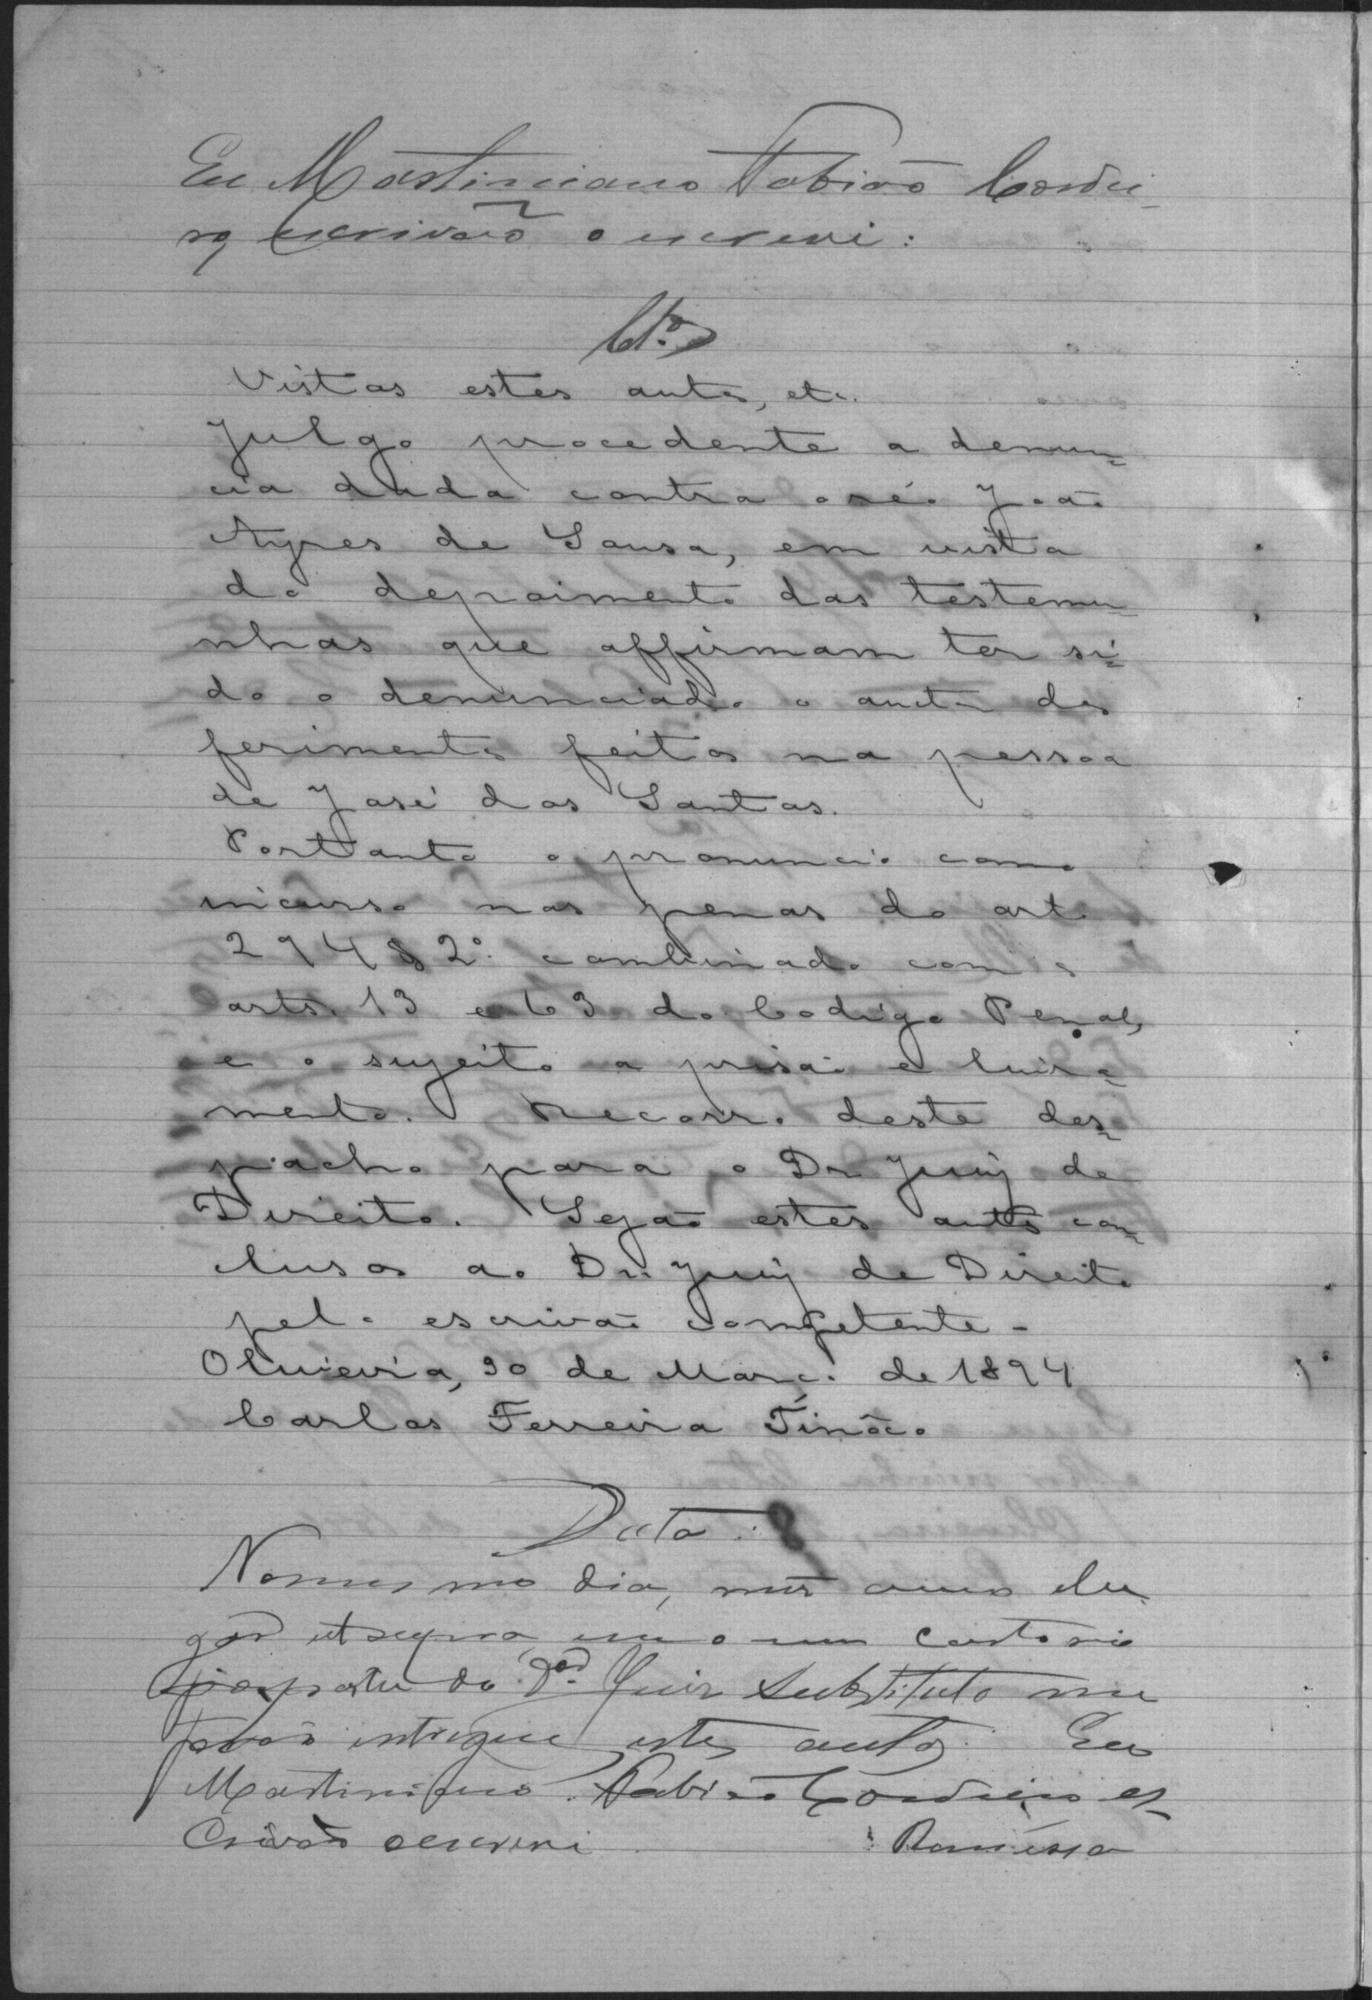 Eu Martiniano Fabião Cordei-
ro, escrivão o escrevi:
Cls.
Vistos estes autos, etc.
Julgo procedente a denun-
cia dada contra o réo João
Ayres de Sousa, em vista
do depoimento das testemu-
nhas que affirmam ter si-
do o denunciado o auctor dos
ferimentos feitos na pessoa
de José dos Santos.
Portanto o pronuncio como
incurso nas penas do art.
294 § 2º combinado com os
arts. 13 e 63 do Codigo Penal,
e o sujeito a prisão e livra-
mento. Recorro deste des-
pacho para o Dr. Juiz de
Direito. Sejão estes autos con-
clusos ao Dr. Juiz de Direito
pelo escrivão competente -
Oliveira, 30 de Março de 1894
Carlos Ferreira Tinôco
Data
No mesmo dia, mez anno e lu-
gar ut supra em o meu cartorio
por parte do Dor. Juiz Substituto me
forão entregues estes autos. Eu
Martiniano Fabião Cordeiro es-
crivão o escrevi Remessa